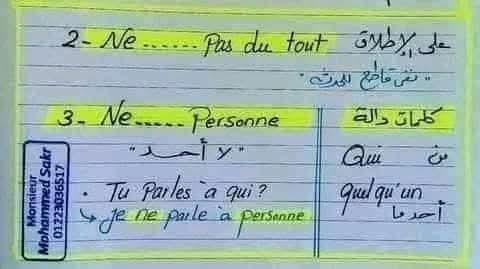 2- Ne ...... Pas du tout على الإطلاق
"نفى قاطع للحدث"
3- Ne..... Personne
"لا أحد"
• Tu Parles à qui?
↳ Je ne parle à personne
كلمات دالة
Qui من
quelqu'un
أحد ما
Monsieur
Mohammed Sakr
01223036517